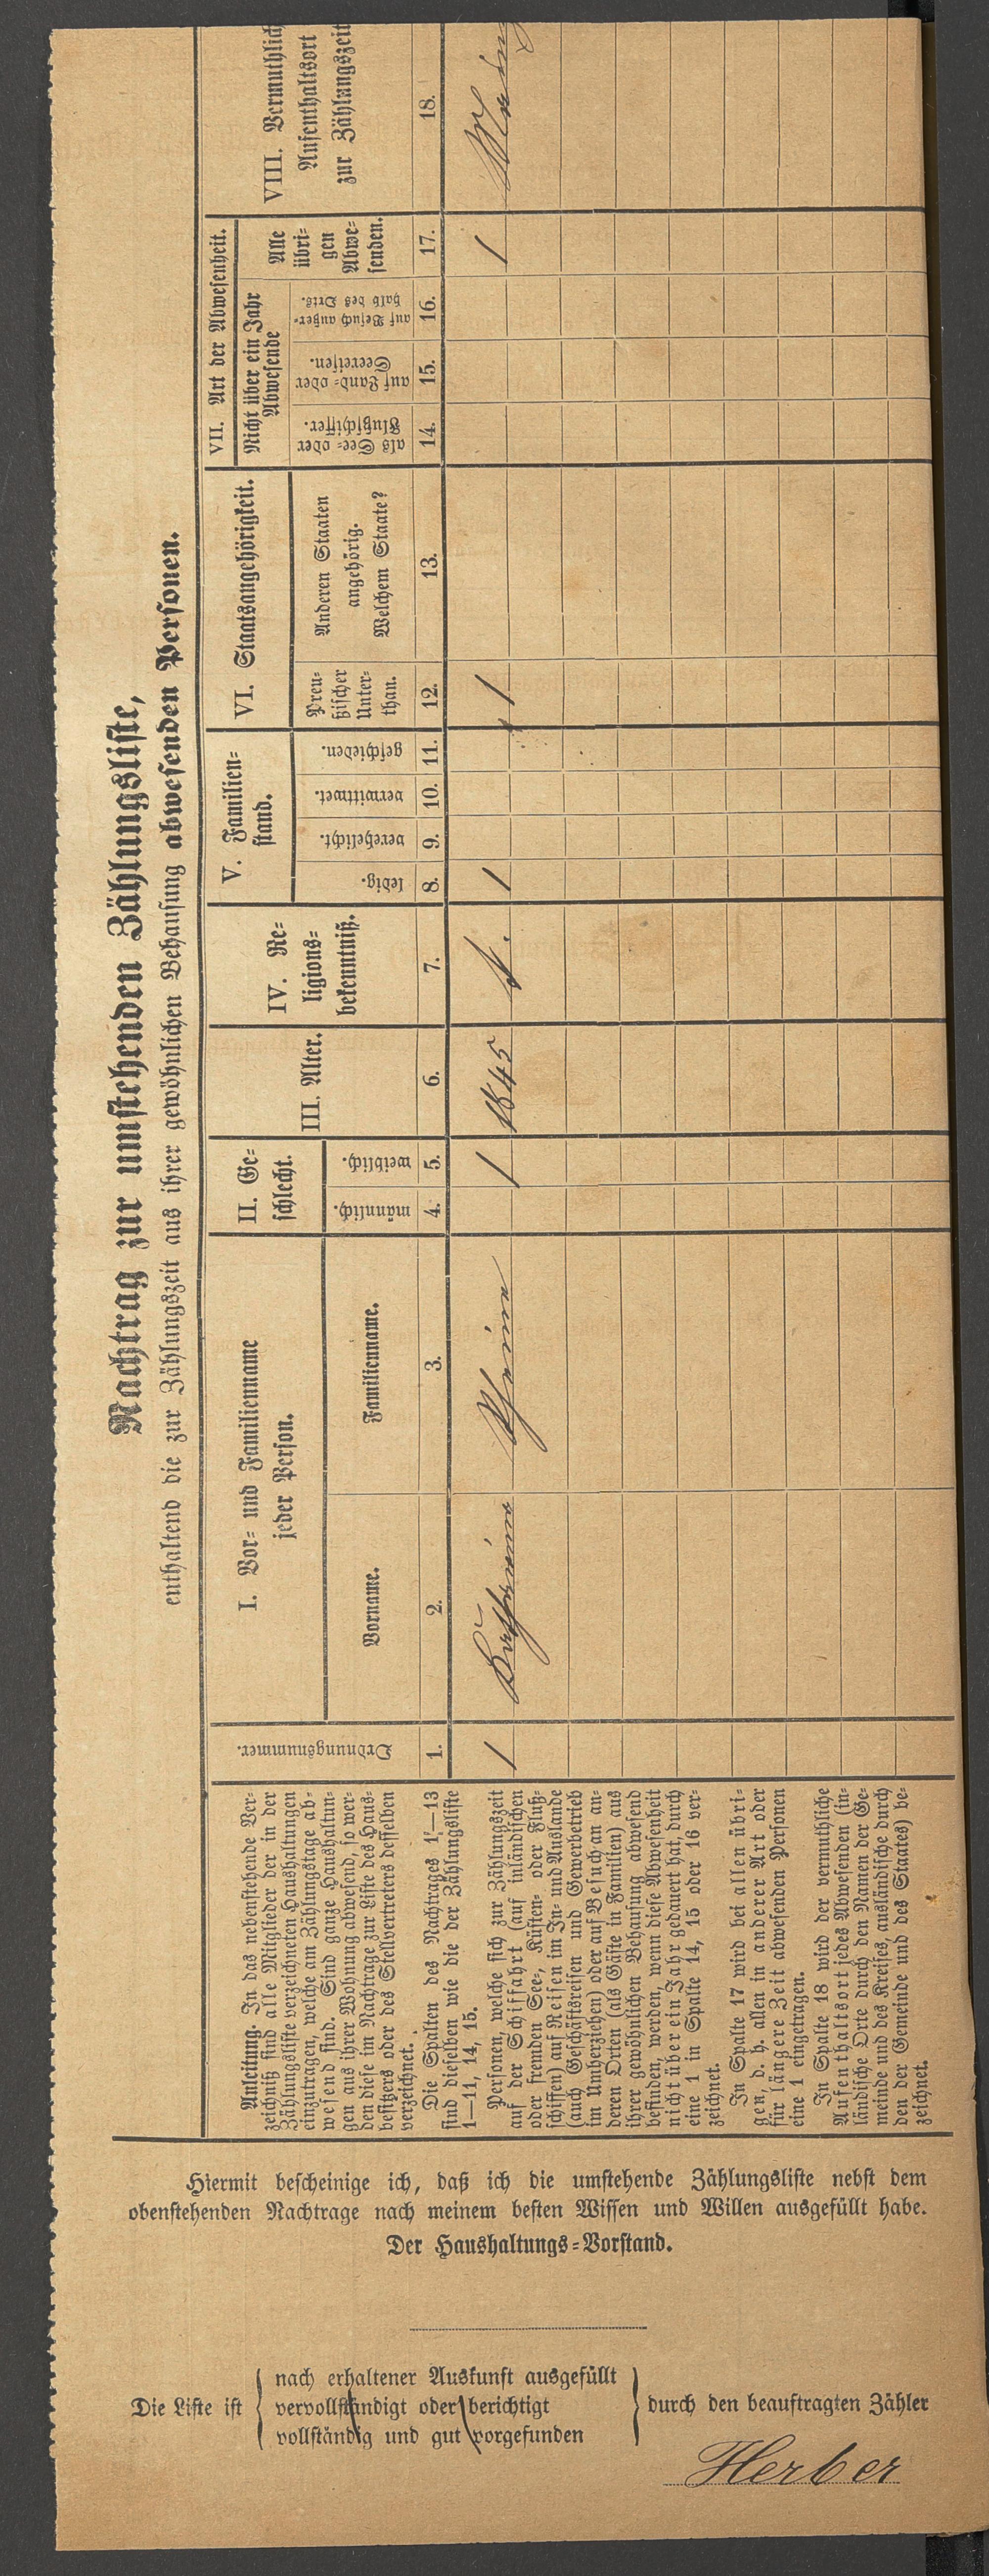 Nachtrag zur umstehenden Zählungsliste,
enthaltend die zur Zählungszeit aus ihrer gewöhnlichen Behausung abwesenden Personen.
Anleitung. In das nebenstehende Ver-
zeichniß sind alle Mitglieder der in der
Zählungsliste verzeichneten Haushaltungen
einzutragen, welche am Zählungstage ab-
wesend sind. Sind ganze Haushaltun-
gen aus ihrer Wohnung abwesend, so wer-
den diese im Nachtrage zur Liste des Haus-
besitzers oder des Stellvertreters desselben
verzeichnet.
Die Spalten des Nachtrages 1—13
sind dieselben wie die der Zählungsliste
1—11, 14, 15.
Personen, welche sich zur Zählungszeit
auf der Schiffahrt (auf inländischen
oder fremden See-, Küsten- oder Fluß-
schiffen) auf Reisen im In- und Auslande
(auch Geschäftsreisen und Gewerbetrieb
im Umherziehen) oder auf Besuch an an-
deren Orten (als Gäste in Familien) aus
ihrer gewöhnlichen Behausung abwesend
befinden, werden, wenn diese Abwesenheit
nicht über ein Jahr gedauert hat, durch
eine 1 in Spalte 14, 15 oder 16 ver-
zeichnet.
In Spalte 17 wird bei allen übri-
gen, d. h. allen in anderer Art oder
für längere Zeit abwesenden Personen
eine 1 eingetragen.
In Spalte 18 wird der vermuthliche
Aufenthaltsort jedes Abwesenden (in-
ländische Orte durch den Namen der Ge-
meinde und des Kreises, ausländische durch
den der Gemeinde und des Staates) be-
zeichnet.
Ordnungsnummer.
I. Vor- und Familienname
jeder Person.
Vorname.
Familienname.
II. Ge-
schlecht.
männlich.
weiblich.
III. Alter.
IV. Re-
ligions-
bekenntniß.
V. Familien-
stand.
ledig.
verehelicht.
verwittwet.
geschieden.
VI. Staatsangehörigkeit.
Preu-
ßischer
Unter-
than.
Anderen Staaten
angehörig.
Welchem Staate?
VII. Art der Abwesenheit.
Nicht über ein Jahr
Abwesende
als See- oder
Flußschiffer.
auf Land- oder
Seereisen.
auf Besuch außer-
halb des Orts.
Alle
übri-
gen
Abwe-
senden.
VIII. Vermuthlich
Aufenthaltsort
zur Zählungszeit
1. 2. 3. 4. 5. 6. 7. 8. 9. 10. 11. 12. 13. 14. 15. 16. 17. 18.
1 1 1845 1 1 1
Hiermit bescheinige ich, daß ich die umstehende Zählungsliste nebst dem
obenstehenden Nachtrage nach meinem besten Wissen und Willen ausgefüllt habe.
Der Haushaltungs-Vorstand.
Die Liste ist
nach erhaltener Auskunft ausgefüllt
vervollständigt oder berichtigt
vollständig und gut vorgefunden
durch den beauftragten Zähler
Herber